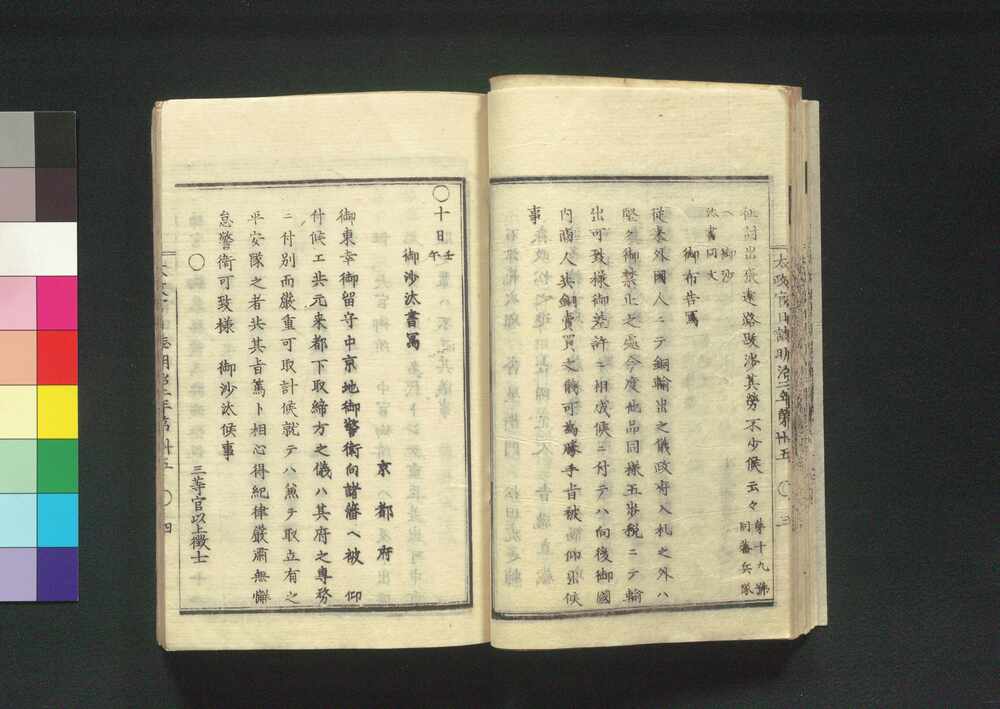 征討出張遠路跋渉其労不少候云々第十九號
同藩兵隊
へ御沙
汰書同文
御布告寫
従来外國人ニテ銅輸出之儀政府入札之外ハ
堅ク御禁止之處今度他品同様五分税ニテ輸
出可致様御差許ニ相成候ニ付テハ向後御國
内商人共銅賣買之儀可為勝手旨被 仰出候
事
太政官日誌明治二年第廿五 〇 三
〇十日壬午
御沙汰書寫
京都府
御東幸御留守中京地御警衛向諸藩へ被 仰
付候エ共元来都下取締方之儀ハ其府之専務
ニ付別而厳重可取計候就テハ兼テ取立有之
平安隊之者共其旨篤ト相心得紀律厳肅無懈
怠警衛可致様 御沙汰候事
〇 三等官以上徴士